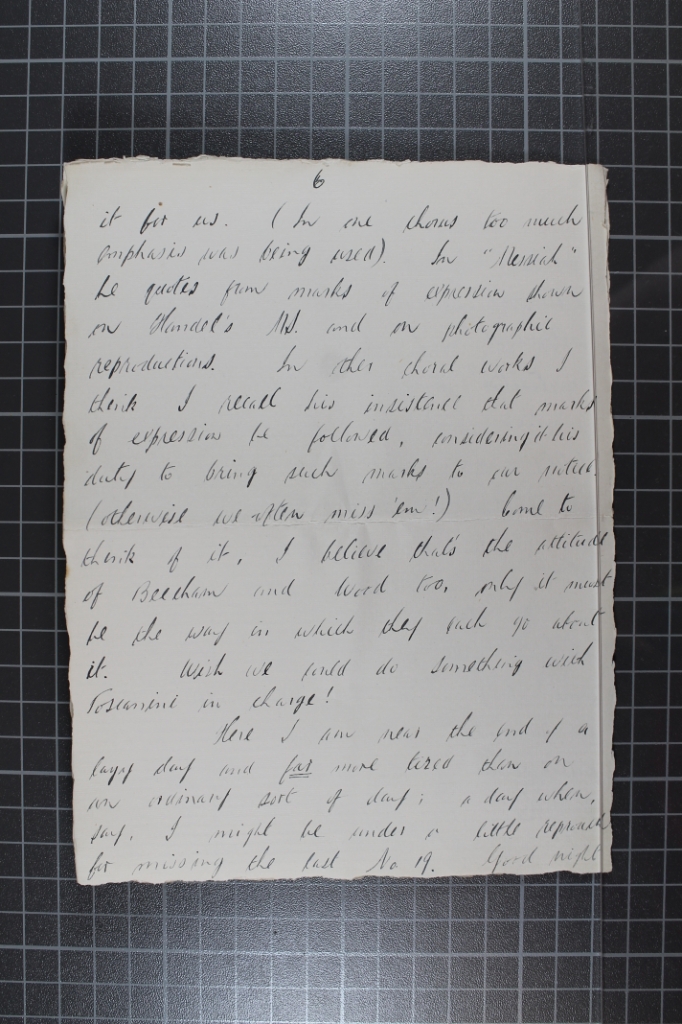 6
it for us. (In one chorus too much
emphasis was being used). In "Messiah"
he quotes from marks of expression shown
on Handel's MS. and on photographic
reproductions. In other choral works I
think I recall his insistence that marks
of expression be followed, considering it his
duty to bring such marks to our notice.
(otherwise we often miss 'em!) Come to
think of it, I believe that's the attitude
of Beecham and Wood too, only it must
be the way in which they each go about
it. Wish we could do something with
Toscanini in charge!
Here I am near the end of a
lazy day and far more tired than on
an ordinary sort of day; a day when,
say, I might be under a little reproach
for missing the last No 19. Good night